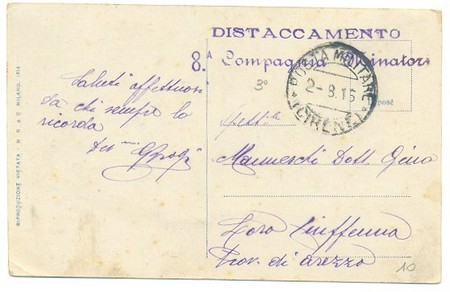 DISTACCAMENTO
8.ª Compagnia Minatori
POSTA MILITARE
2-8.16
(CIRENE)
3º
Saluti affettuosi
da chi sempre lo
ricorda
Spett.le
Manneschi Dott. Gino
Loro Ciuffenna
Prov. di Arezzo
10
RIPRODUZIONE VIETATA
MILANO, 1914